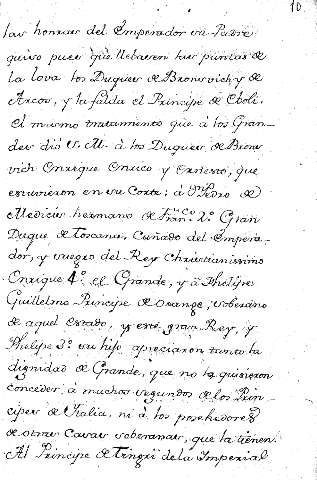 10
las honras del Emperador su Padre
quiso pues qᵉ llebasen las puntas de
la lova los Duques de Bronsvich, y de
Arcos, y la falda el Principe de Eboli.
El mismo tratamiento que â los Gran-
des dió S. M. â los Duques de Brons
vich Enrique Enrico y Ernesto, que
estuvieron en su Corte: â Dⁿ Pedro de
Medicis hermano de Franᶜᵒ 2º Gran
Duque de Toscana, Cuñado del Empera-
dor, y suegro del Rey Christianissimo
Enrique 4º el Grande, y â Phelipe
Guillelmo Principe de Orange, soberano
de aquel estado, y este gran Rey, y
Phelipe 3º su hijo apreciaron tanto la
dignidad de Grande, que no la quisieron
conceder â muchos segundos de los Prin-
cipes de Italia, ni â los posehedores
de otras Casas soberanas, que la tienen.
Al Principe de de la Imperial